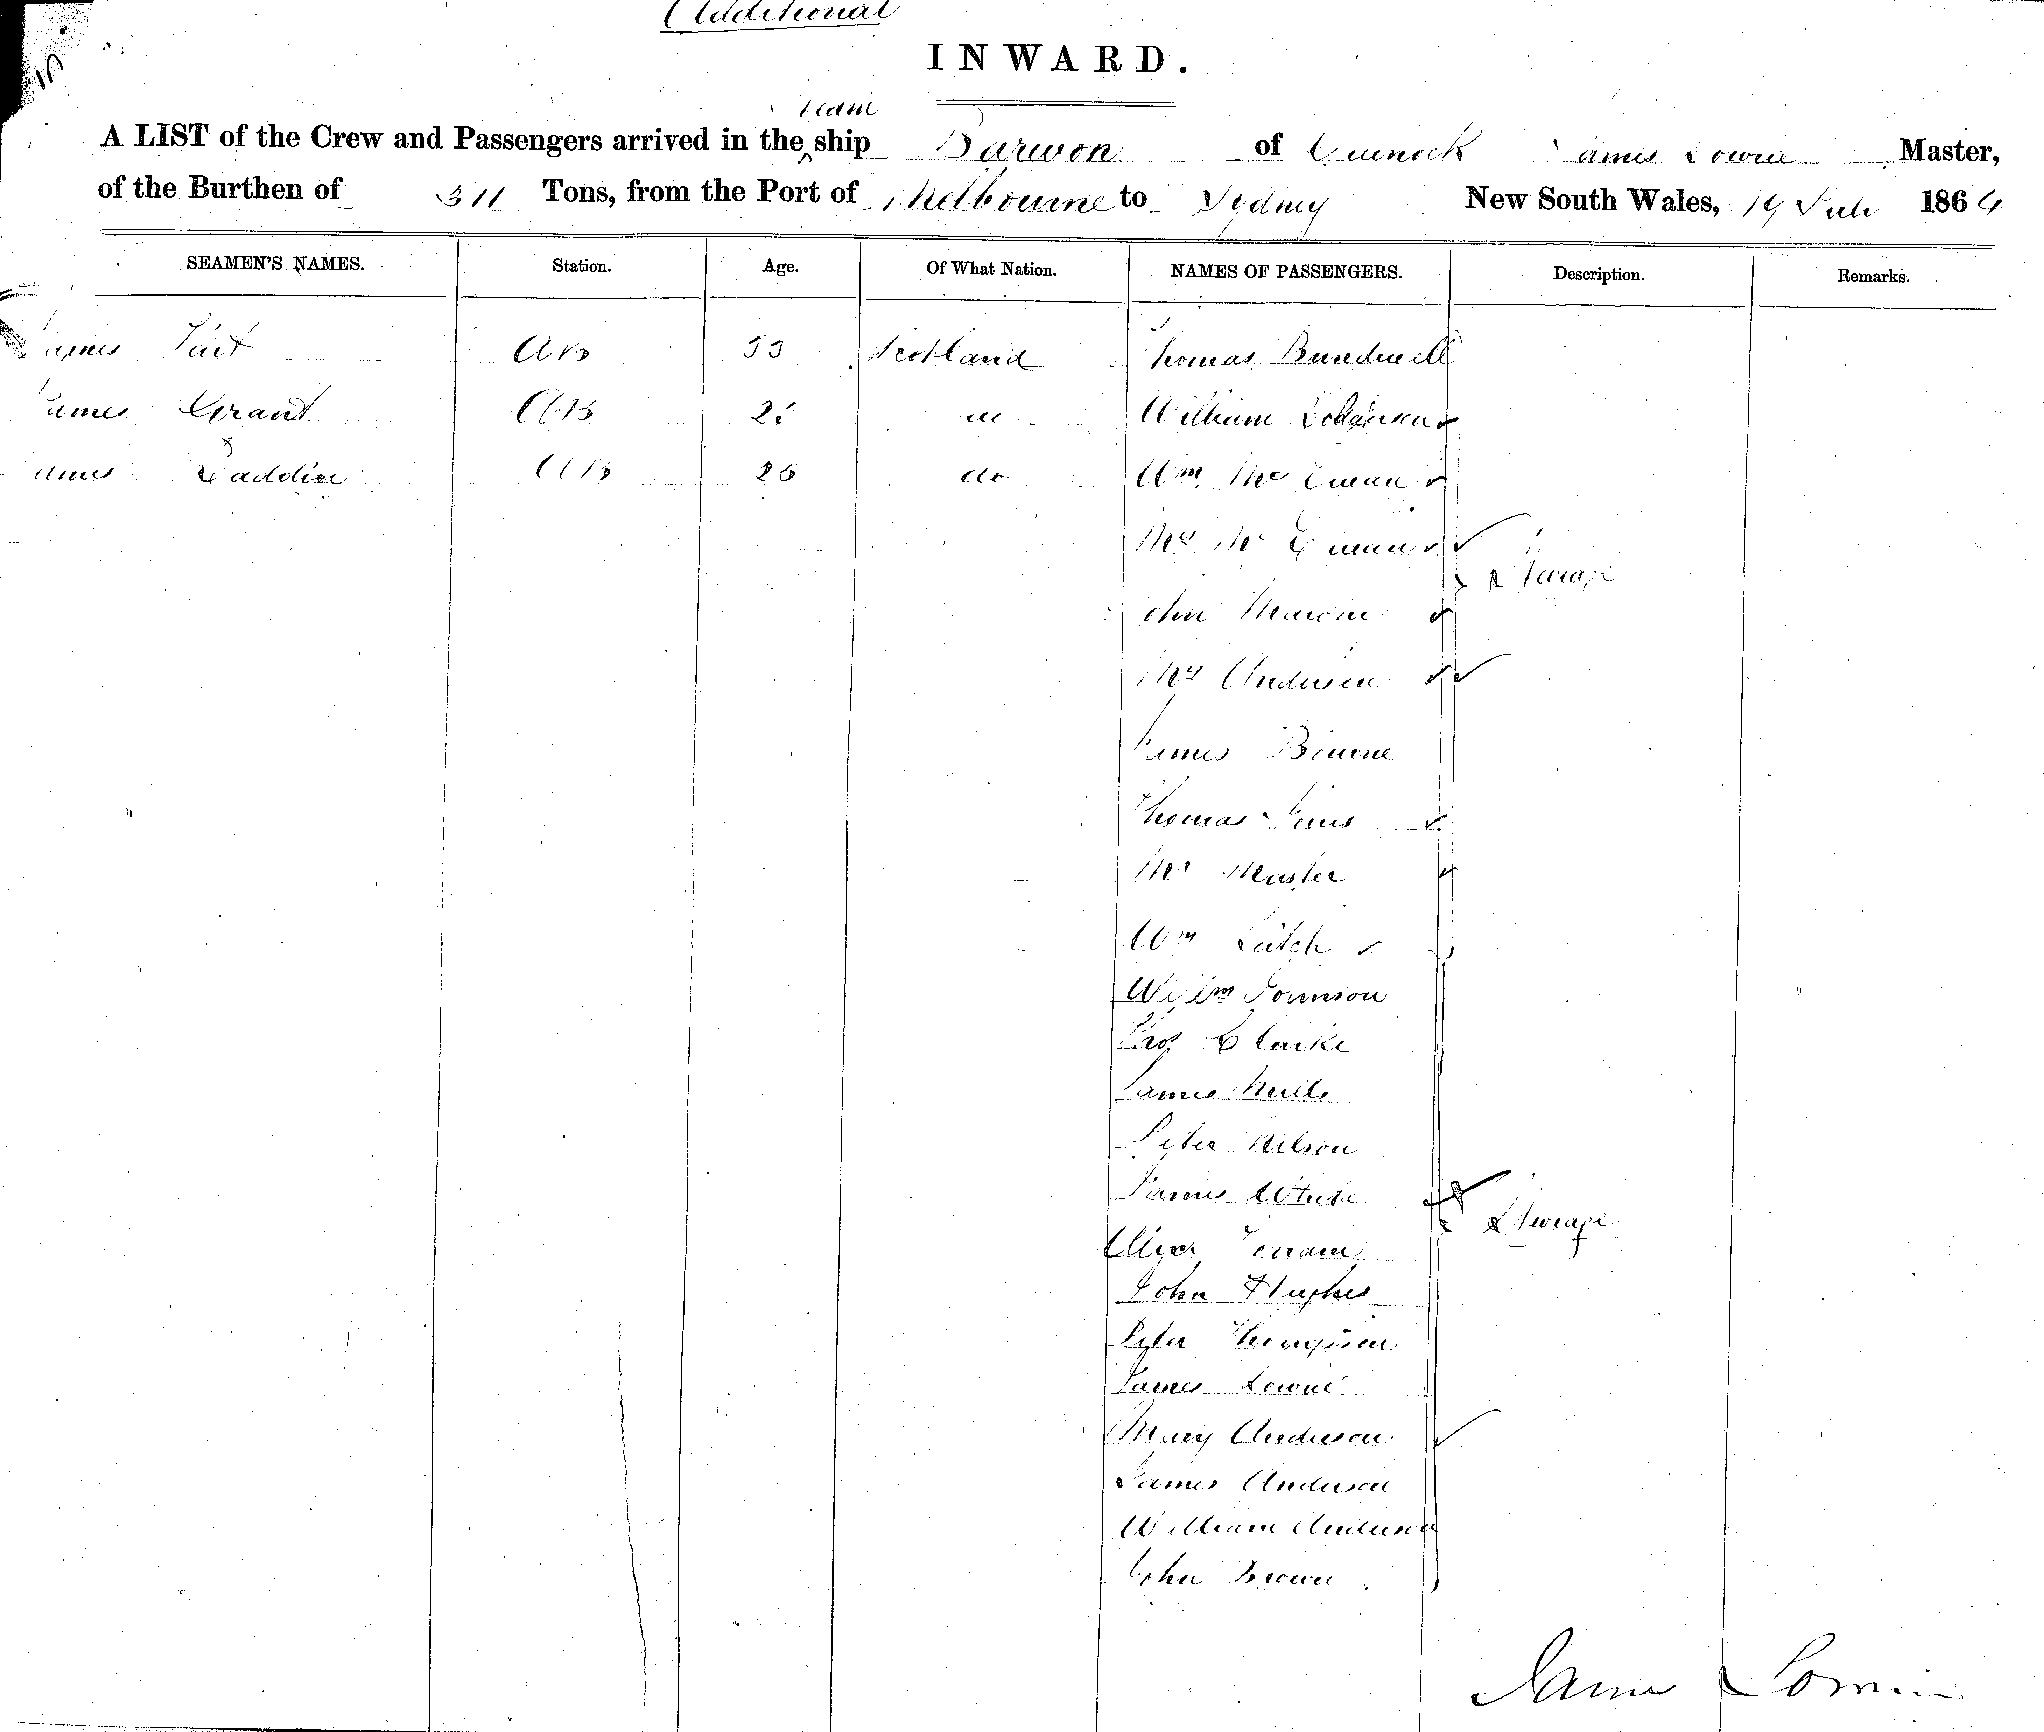 Additional
INWARD.
A LIST of the Crew and Passengers arrived in the steam ship Barwon of Greenock James Lowrie Master,
of the Burthen of 311 Tons, from the Port of Melbourne to Sydney New South Wales, 19 July 1864
SEAMEN'S NAMES. Station. Age. Of What Nation. NAMES OF PASSENGERS. Description. Remarks.
James Tait AB Scotland Thomas
James Grant AB William
James AB 26 do Wm Mc Ewan
Mrs Mc Ewan
Steerage
John
Mrs Anderson
James Browne
Thomas Sims
Mr Master
Wm Leitch
Willm Johnson
Clarke
James Mills
Peter Wilson
James White
Steerage
John Hughes
Peter Thompson
James Lowrie
Mary Anderson
James Anderson
William Anderson
John Brown
James Lowrie